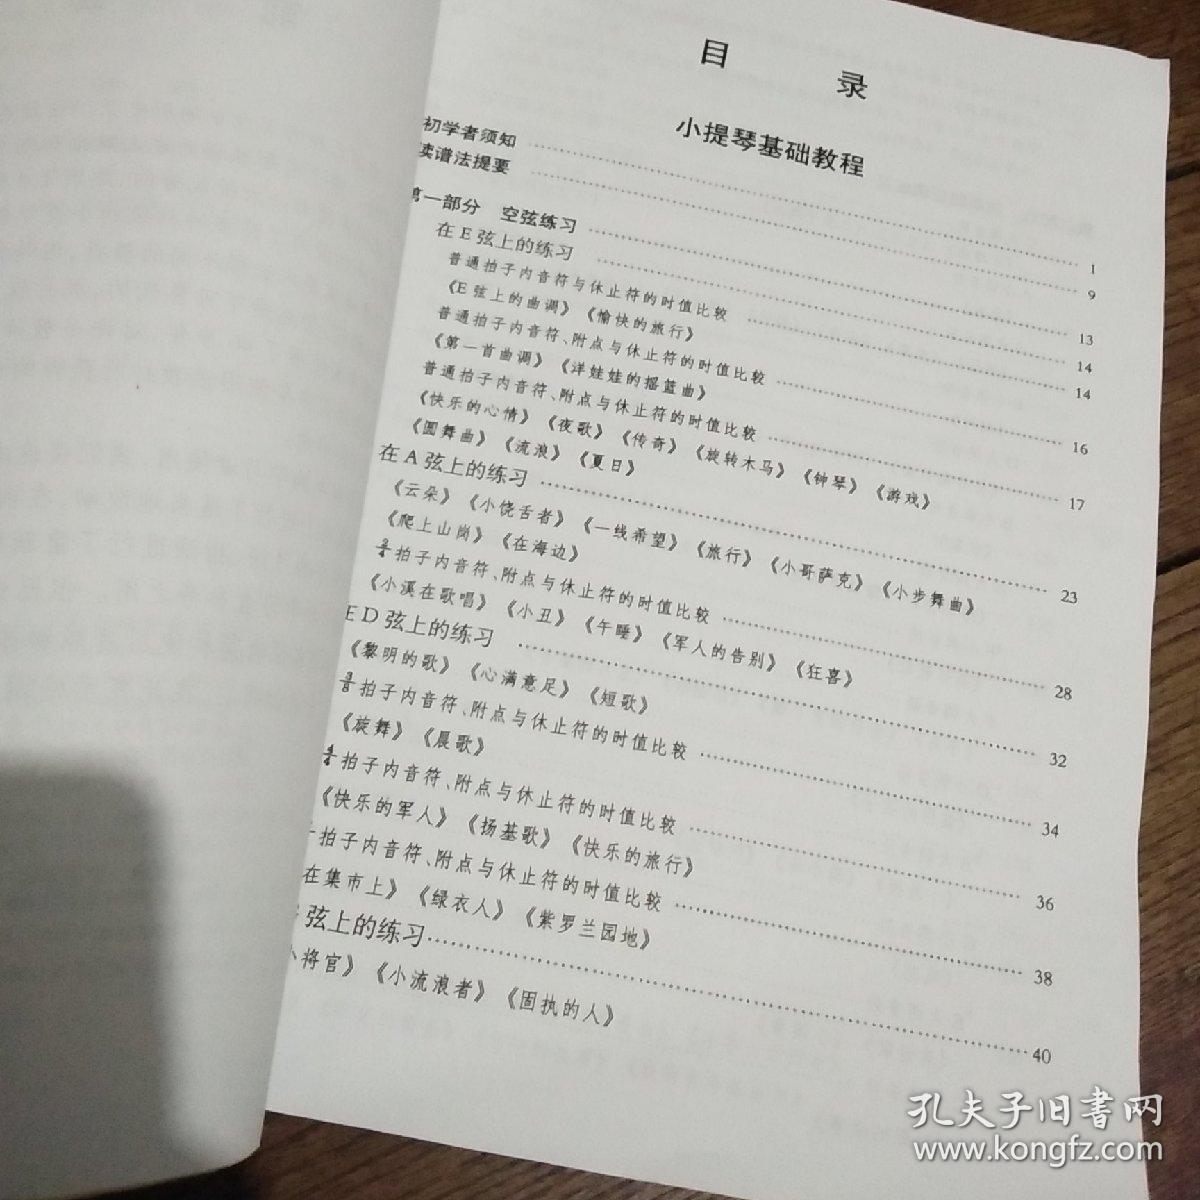 目 录
小提琴基础教程
初学者须知 1
读谱法提要 9
第一部分 空弦练习 13
在E弦上的练习 14
普通拍子内音符与休止符的时值比较 14
《E弦上的曲调》《愉快的旅行》
普通拍子内音符、附点与休止符的时值比较 16
《第一首曲调》《洋娃娃的摇篮曲》
普通拍子内音符、附点与休止符的时值比较 17
《快乐的心情》《夜歌》《传奇》《旋转木马》《钟琴》《游戏》
《圆舞曲》《流浪》《夏日》
在A弦上的练习 23
《云朵》《小饶舌者》《一线希望》《旅行》《小哥萨克》《小步舞曲》
《爬上山岗》《在海边》
拍子内音符、附点与休止符的时值比较 28
《小溪在歌唱》《小丑》《午睡》《军人的告别》《狂喜》
在D弦上的练习 32
《黎明的歌》《心满意足》《短歌》
拍子内音符、附点与休止符的时值比较 34
《旋舞》《晨歌》
拍子内音符、附点与休止符的时值比较 36
《快乐的军人》《扬基歌》《快乐的旅行》
拍子内音符、附点与休止符的时值比较 38
在集市上》《绿衣人》《紫罗兰园地》
弦上的练习 40
小将官》《小流浪者》《固执的人》
孔夫子旧书网
www.kongfz.com